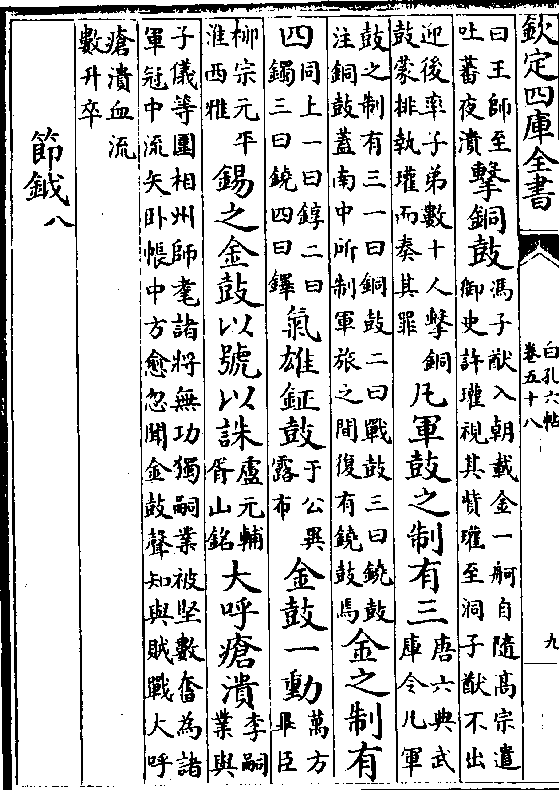 欽定四庫全書
白孔六帖
卷五十八
九
曰王師至吐蕃夜潰擊銅鼓馮子猷入朝載金一舸自隨髙宗遣御史許瓘視其貲瓘至洞子猷不出
迎後率子弟數十人擊銅鼓蒙排執瓘而奏其罪凡軍鼓之制有三唐六典武庫令凡軍
鼓之制有三一曰銅鼓二曰戰鼓三曰鐃鼓注銅鼓蓋南中所制軍旅之間復有鐃鼓焉金之制有
四同上一曰錞二曰鐲三曰鐃四曰鐸氣雄鉦鼓于公異露布金鼓一動萬方畢臣
柳宗元平淮西雅錫之金鼓以號以誅盧元輔胥山銘大呼瘡潰李嗣業與
子儀等圍相州師耄諸將無功獨嗣業被堅數奮為諸軍冠中流矢卧帳中方愈忽聞金鼓聲知與賊戰大呼
瘡潰血流數升卒
節鉞八